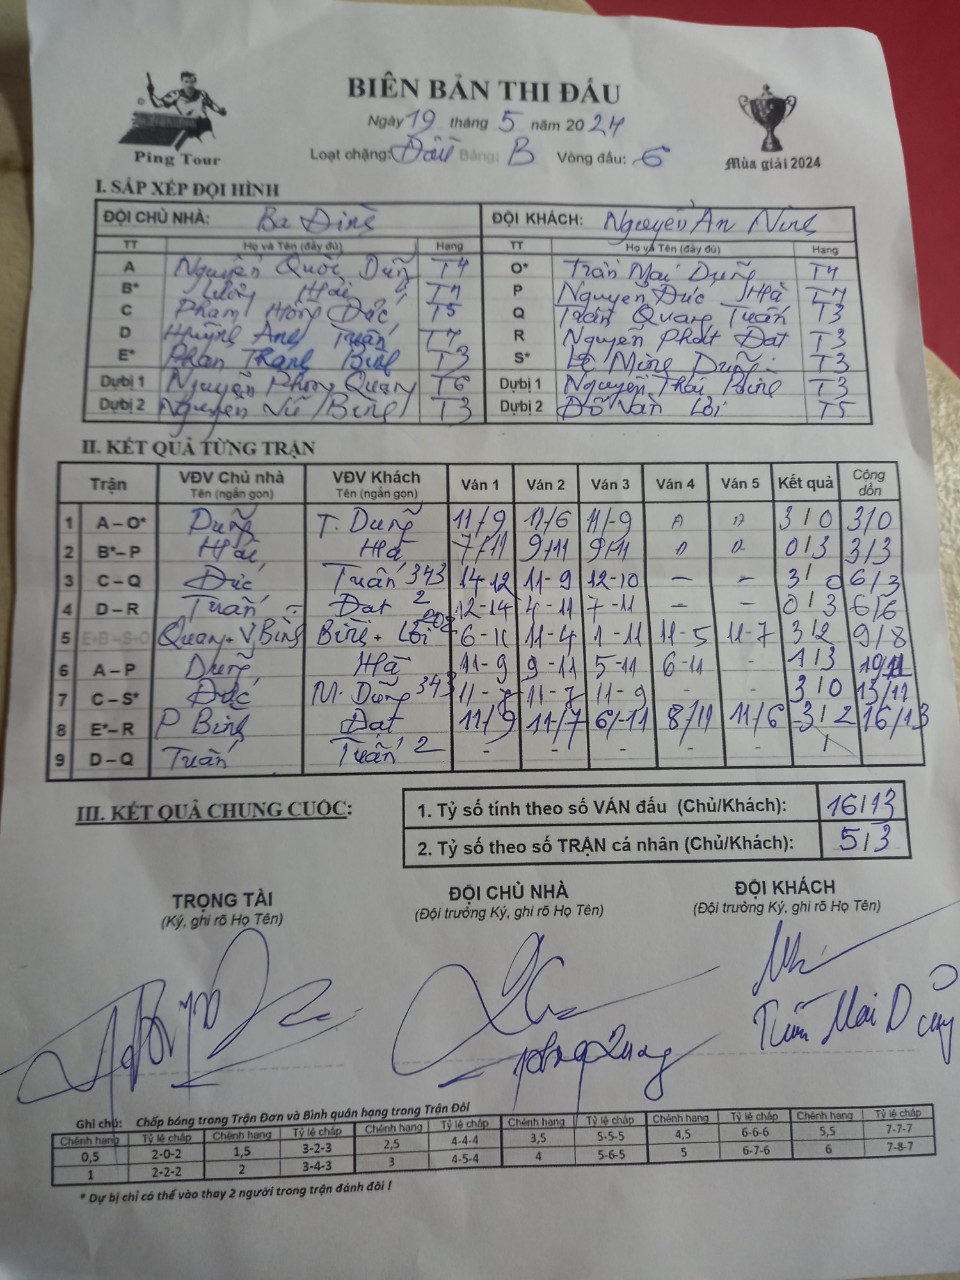 BIÊN BẢN THI ĐẤU
Ping Tour
Ngày 19 tháng 5 năm 2024
Loại chặng: Đấu Bảng: B Vòng đấu: 6
Mùa giải 2024
I. SẮP XẾP ĐỘI HÌNH
ĐỘI CHỦ NHÀ: Ba Đình ĐỘI KHÁCH: Nguyễn An Ninh
TT Họ và Tên (đầy đủ) Hạng TT Họ và Tên (đầy đủ) Hạng
A Nguyễn Quốc Dũng T4 O* Trần Mai Dũng T4
B* Lương Hải T4 P Nguyễn Đức Hà T4
C Phạm Hồng Đức T5 Q Trần Quang Tuấn T3
D Huỳnh Anh Tuấn T4 R Nguyễn Phát Đạt T3
E* Phan Thanh Bình T3 S* Lê Minh Dũng T3
Dự bị 1 Nguyễn Phong Quang T6 Dự bị 1 Nguyễn Thái Bình T3
Dự bị 2 Nguyễn Vũ Bình T3 Dự bị 2 Đỗ Văn Lôi T5
II. KẾT QUẢ TỪNG TRẬN
Trận VĐV Chủ nhà Tên (ngắn gọn) VĐV Khách Tên (ngắn gọn) Ván 1 Ván 2 Ván 3 Ván 4 Ván 5 Kết quả Cộng dồn
1 A – O* Dũng T. Dũng 11/9 11/6 11/-9 3/0 3/0
2 B*– P Hải Hà 7/11 9/11 9/11 0/3 3/3
3 C – Q Đức Tuấn 343 14-12 11-9 12-10 – – 3/0 6/3
4 D – R Tuấn Đạt 2 12-14 4-11 7-11 – – 0/3 6/6
5 E+B – S+O Quang + V Bình Bình + Lôi 202 6-11 11-4 1-11 11-5 11-7 3/2 9/8
6 A – P Dũng Hà 11-9 9-11 5-11 6-11 - 1/3 10/11
7 C – S* Đức M. Dũng 343 11-8 11-7 11-9 - - 3/0 13/11
8 E*– R P Bình Đạt 11/9 11/7 6/-11 8/11 11/6 3/2 16/13
9 D – Q Tuấn Tuấn 2 - - - - - /
III. KẾT QUẢ CHUNG CUỘC:
1. Tỷ số tính theo số VÁN đấu (Chủ/Khách): 16/13
2. Tỷ số theo số TRẬN cá nhân (Chủ/Khách): 5/3
TRỌNG TÀI ĐỘI CHỦ NHÀ ĐỘI KHÁCH
(Ký, ghi rõ Họ Tên) (Đội trưởng Ký, ghi rõ Họ Tên) (Đội trưởng Ký, ghi rõ Họ Tên)
Phong Quang Trần Mai Dũng
Ghi chú: Chấp bóng trong Trận Đơn và Bình quân hạng trong Trận Đôi
Chênh hạng Tỷ lệ chấp Chênh hạng Tỷ lệ chấp Chênh hạng Tỷ lệ chấp Chênh hạng Tỷ lệ chấp Chênh hạng Tỷ lệ chấp Chênh hạng Tỷ lệ chấp
0,5 2-0-2 1,5 3-2-3 2,5 4-4-4 3,5 5-5-5 4,5 6-6-6 5,5 7-7-7
1 2-2-2 2 3-4-3 3 4-5-4 4 5-6-5 5 6-7-6 6 7-8-7
* Dự bị chỉ có thể vào thay 2 người trong trận đánh đôi !